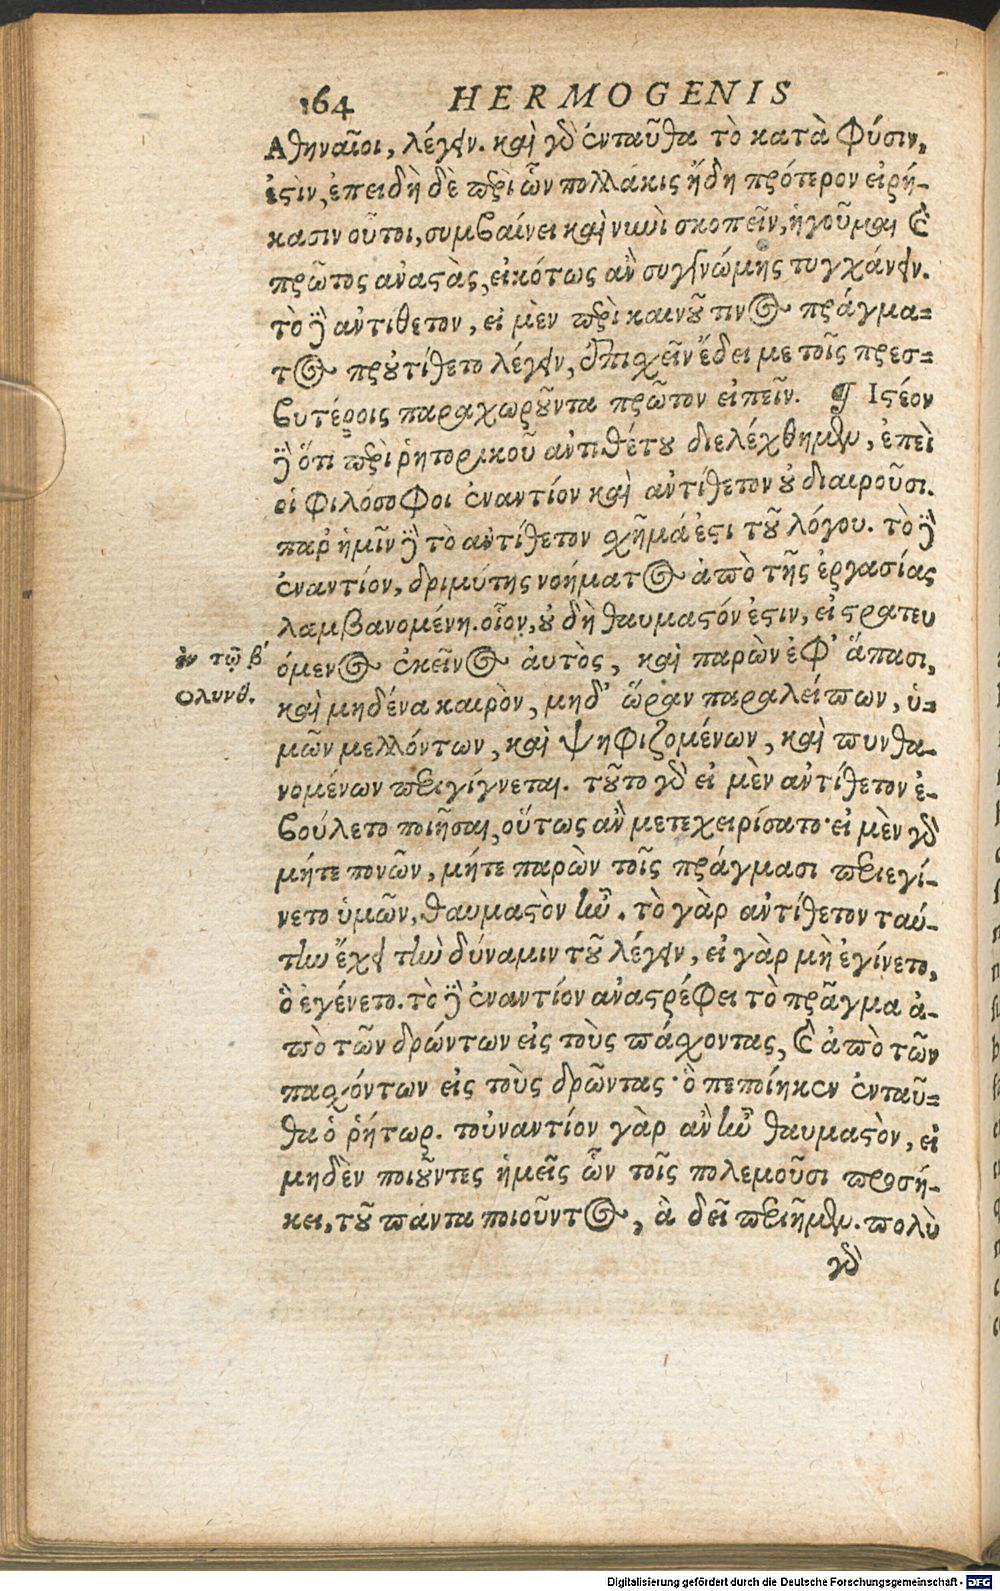 164 HERMOGENIS
Αθηναῖοι, λέγειν. καὶ γὰρ ἐνταῦθα τὸ κατὰ φύσιν,
ἐστὶν, ἐπειδὴ δὲ περὶ ὧν πολλάκις ἤδη πρότερον εἰρή-
κασιν οὗτοι, συμβαίνει καὶ νυνὶ σκοπεῖν, ἡγοῦμαι καὶ
πρῶτος ἀναστὰς, εἰκότως ἂν συγγνώμης τυγχάνειν.
τὸ δὲ ἀντίθετον, εἰ μὲν περὶ καινοῦ τινος πράγμα-
τος προὐτίθετο λέγειν, ἐπισχεῖν ἔδει με τοῖς πρεσ-
βυτέροις παραχωροῦντα πρῶτον εἰπεῖν. ¶ Ιστέον
δὲ ὅτι περὶ ῥητορικοῦ ἀντιθέτου διελέχθημεν, ἐπεὶ
οἱ φιλόσοφοι ἐναντίον καὶ ἀντίθετον οὐ διαιροῦσι.
παρ' ἡμῖν δὲ τὸ ἀντίθετον σχῆμά ἐστι τοῦ λόγου. τὸ δὲ
ἐναντίον, δριμύτης νοήματος ἀπὸ τῆς ἐργασίας
λαμβανομένη. οἷον, οὐ δὴ θαυμαστόν ἐστιν, εἰ στρατευ
ἐν τῷ β΄ όμενος ἐκεῖνος αὐτὸς, καὶ παρὼν ἐφ' ἅπασι,
Ολυνθ. καὶ μηδένα καιρὸν, μηδ' ὥραν παραλείπων, ὑ-
μῶν μελλόντων, καὶ ψηφιζομένων, καὶ πυνθα-
νομένων περιγίγνεται. τοῦτο γὰρ εἰ μὲν ἀντίθετον ἐ-
βούλετο ποιῆσαι, οὕτως ἂν μετεχειρίσατο· εἰ μὲν γὰρ
μήτε πονῶν, μήτε παρὼν τοῖς πράγμασι περιεγί-
νετο ὑμῶν, θαυμαστὸν ἦν. τὸ γὰρ ἀντίθετον ταύ-
την ἔχει τὴν δύναμιν τοῦ λέγειν, εἰ γὰρ μὴ ἐγίνετο,
ὃ ἐγένετο. τὸ δὲ ἐναντίον ἀναστρέφει τὸ πρᾶγμα ἀ-
πὸ τῶν δρώντων εἰς τοὺς πάσχοντας, καὶ ἀπὸ τῶν
πασχόντων εἰς τοὺς δρῶντας· ὃ πεποίηκεν ἐνταῦ-
θα ὁ ῥήτωρ. τοὐναντίον γὰρ ἂν ἦν θαυμαστὸν, εἰ
μηδὲν ποιοῦντες ἡμεῖς ὧν τοῖς πολεμοῦσι προσή-
κει, τοῦ πάντα ποιοῦντος, ἃ δεῖ περιῆμεν. πολὺ
γὰρ
Digitalisierung gefördert durch die Deutsche Forschungsgemeinschaft - DFG